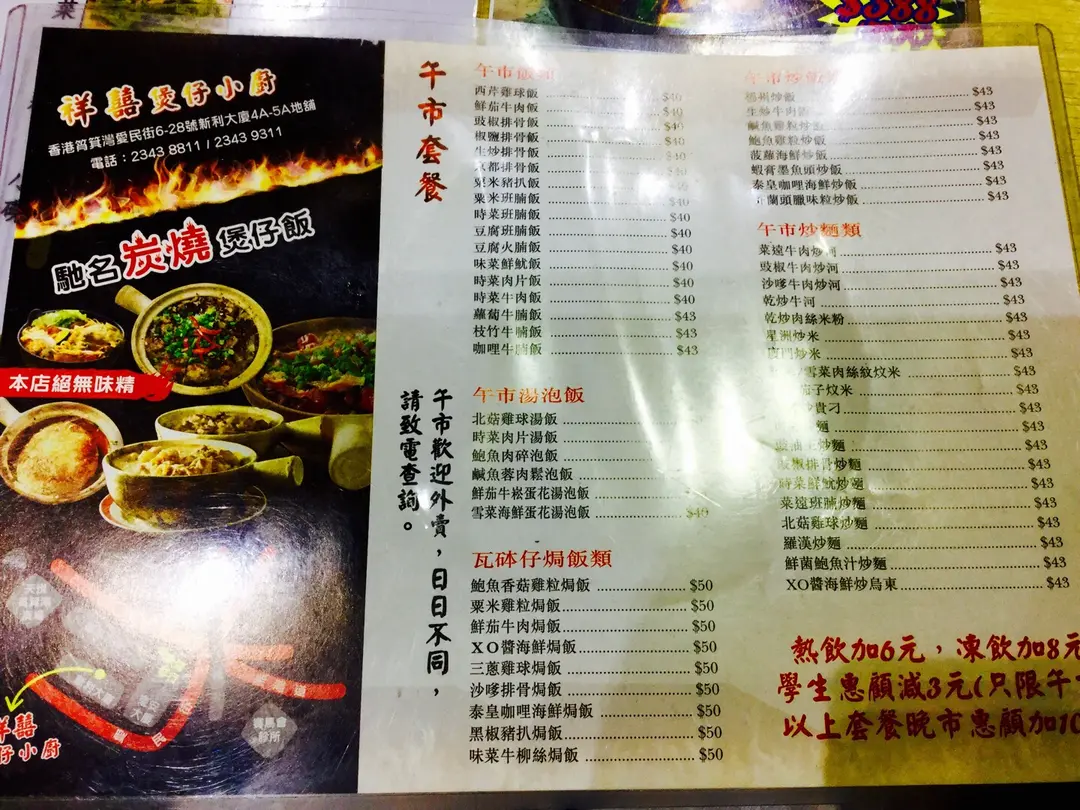 $388
祥囍煲仔小廚
香港筲箕灣愛民街6-28號新利大廈4A-5A地舖
電話：2343 8811 / 2343 9311
馳名炭燒煲仔飯
本店絕無味精
祥囍
仔小廚
午市套餐
午市歡迎外賣，日日不同，
請致電查詢。
午市飯類
西芹雞球飯 $40
鮮茄牛肉飯 $40
豉椒排骨飯 $40
椒鹽排骨飯 $40
生炒排骨飯 $40
京都排骨飯 $40
粟米豬扒飯 $40
粟米班腩飯 $40
時菜班腩飯 $40
豆腐班腩飯 $40
豆腐火腩飯 $40
味菜鮮魷飯 $40
時菜肉片飯 $40
時菜牛肉飯 $40
蘿蔔牛腩飯 $43
枝竹牛腩飯 $43
咖哩牛腩飯 $43
午市湯泡飯
北菇雞球湯飯
時菜肉片湯飯
鮑魚肉碎泡飯
鹹魚蓉肉鬆泡飯
鮮茄牛崧蛋花湯泡飯
雪菜海鮮蛋花湯泡飯 $49
瓦砵仔焗飯類
鮑魚香菇雞粒焗飯 $50
粟米雞粒焗飯 $50
鮮茄牛肉焗飯 $50
XO醬海鮮焗飯 $50
三蔥雞球焗飯 $50
沙嗲排骨焗飯 $50
泰皇咖哩海鮮焗飯 $50
黑椒豬扒焗飯 $50
味菜牛柳絲焗飯 $50
午市炒飯
福州炒飯 $43
生炒牛肉飯 $43
鹹魚雞粒炒飯 $43
鮑魚雞粒炒飯 $43
菠蘿海鮮炒飯 $43
蝦膏墨魚頭炒飯 $43
泰皇咖哩海鮮炒飯 $43
蘭頭臘味粒炒飯 $43
午市炒麵類
菜遠牛肉炒河 $43
豉椒牛肉炒河 $43
沙嗲牛肉炒河 $43
乾炒牛河 $43
乾炒肉絲米粉 $43
星洲炒米 $43
廈門炒米 $43
雪菜肉絲紋炆米 $43
茄子炆米 $43
炒貴刁 $43
麵 $43
豉油王炒麵 $43
豉椒排骨炒麵 $43
時菜鮮魷炒麵 $43
菜遠班腩炒麵 $43
北菇雞球炒麵 $43
羅漢炒麵 $43
鮮菌鮑魚汁炒麵 $43
XO醬海鮮炒烏東 $43
熱飲加6元，凍飲加8元
學生惠顧減3元(只限午
以上套餐晚市惠顧加10